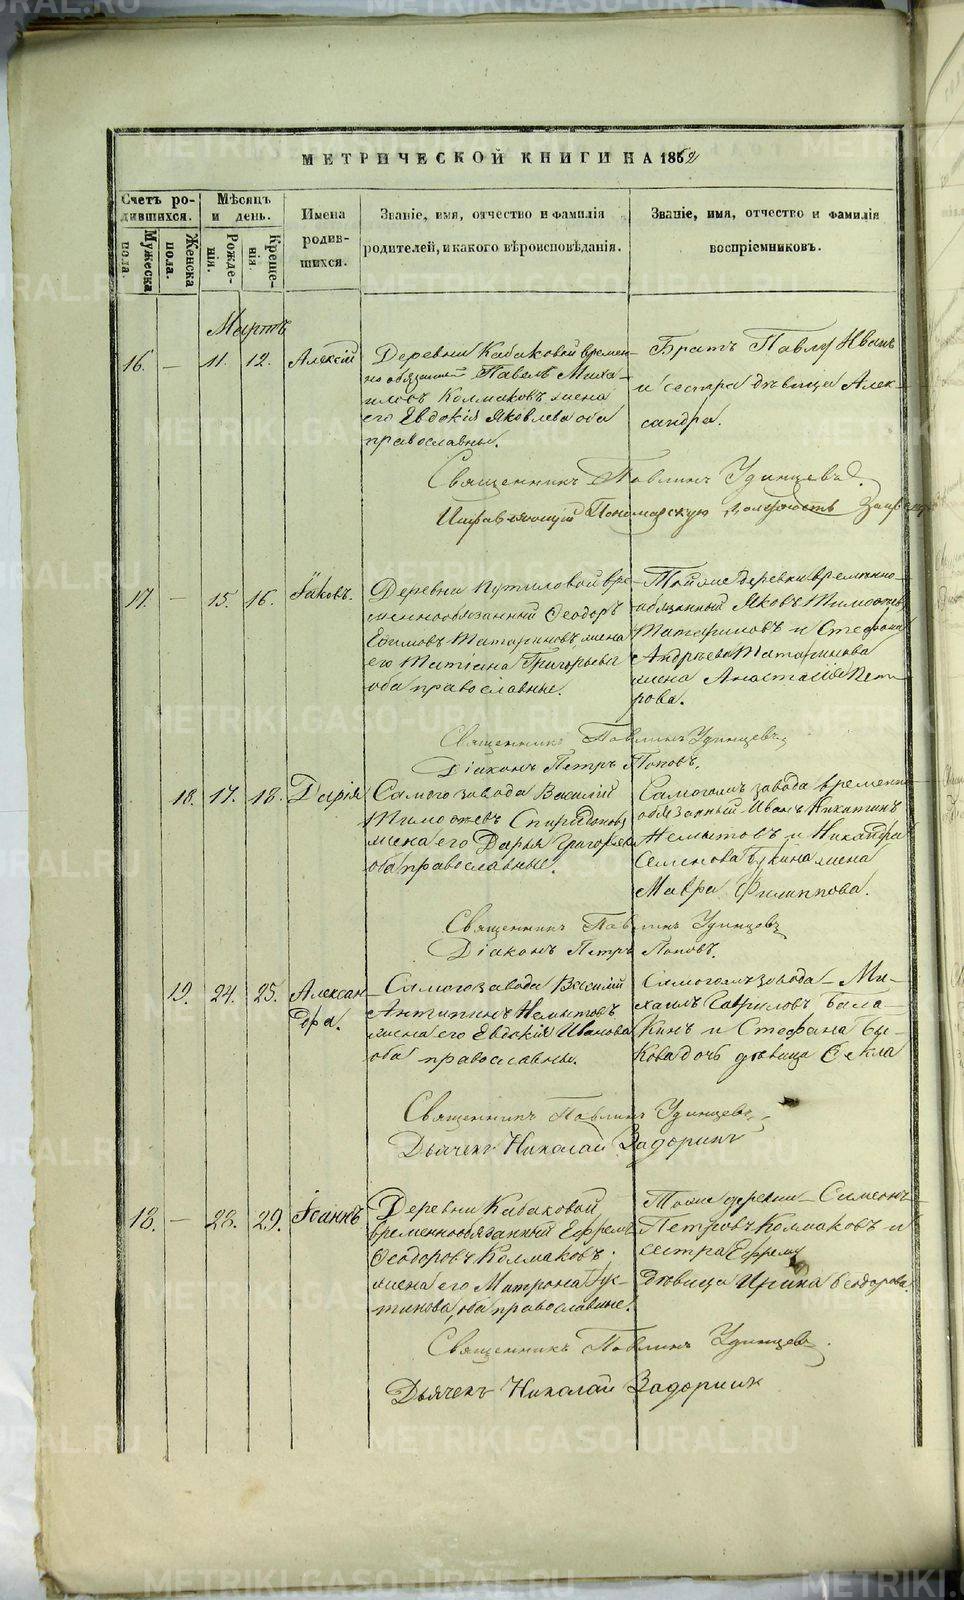 МЕТРИЧЕСКОЙ КНИГИ НА 1862
Счетъ родившихся.
Мужеска пола.
Женска пола.
Мѣсяцъ и день.
Рожденія.
Крещенія.
Имена родившихся.
Званіе, имя, отчество и фамилія родителей, и какого вѣроисповѣданія.
Званіе, имя, отчество и фамилія воспріемниковъ.
Мартъ
16. — 11. 12. Алексій
Деревни Кабаковой времен-
но обязанный Павелъ Миха-
иловъ Колмаковъ жена
его Евдокія Яковлева оба
православные.
Братъ Павлу Иванъ
и сестра дѣвица Алек-
сандра.
Священникъ Павлинъ Удинцевъ.
Исправляющій Пономарскую должность
17. — 15. 16. Іаковъ.
Деревни Путиловой вре-
меннообязанный Ѳеодоръ
Ефимовъ Татариновъ, жена
его Татіана Григорьева
оба православные.
Тойже деревни временно-
обязанный Яковъ Тимоѳеевъ
Татариновъ и Стефана
Андреева Татаринова
жена Анастасія Пет-
рова.
Священникъ Павлинъ Удинцевъ
Діаконъ Петръ Поповъ.
18. 17. 18. Дарія
Самого завода Василій
Тимоѳеевъ Спиридоновъ
жена его Дарья Григорьева
оба православные.
Самогожъ завода временно
обязанный Иванъ Никитинъ
Немытовъ и Никандра
Семенова Букина жена
Мавра Филиппова.
Священникъ Павлинъ Удинцевъ
Діаконъ Петръ Поповъ.
19. 24. 25. Алексан-
дра.
Самого завода Василій
Антипинъ Немытовъ
жена его Евдокія Иванова
оба православные.
Самогожъ завода Ми-
хаилъ Гавриловъ Бала-
кинъ и Стефана Бы-
кова дочь дѣвица Ѳекла
Священникъ Павлинъ Удинцевъ
Дьячекъ Николай Задоринъ
18. — 28. 29. Іоаннъ
Деревни Кабаковой
временнообязанный Ефремъ
Ѳеодоровъ Колмаковъ
жена его Матрона
оба православные.
Тойже деревни Симеонъ
Петровъ Колмаковъ и
сестра Ефрему
дѣвица Ирина Ѳеодорова.
Священникъ Павлинъ Удинцевъ.
Дьячекъ Николай Задоринъ
METRIKI.GASO-URAL.RU